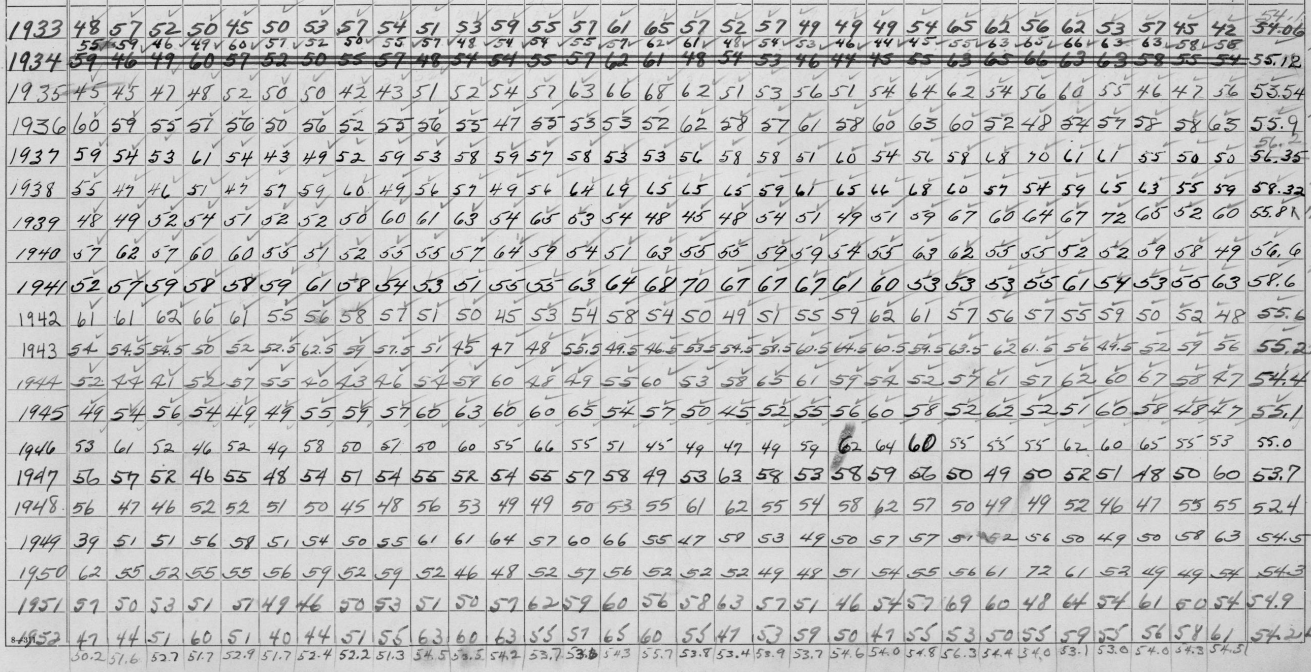 54.1
1933 48 57 52 50 45 50 53 57 54 51 53 59 55 57 61 65 57 52 57 49 49 49 54 65 62 56 62 53 57 45 42 54.06
55 59 46 49 60 57 52 50 55 57 48 54 54 55 57 62 61 48 54 53 46 44 45 55 63 65 66 63 63 58 55
1934 59 46 49 60 57 52 50 55 57 48 54 54 55 57 62 61 48 54 53 46 44 45 55 63 65 66 63 63 58 55 54 55.12
1935 45 45 47 48 52 50 50 42 43 51 52 54 57 63 66 68 62 51 53 56 51 54 64 62 54 56 60 55 46 47 56 53.54
1936 60 59 55 51 56 50 56 52 55 56 55 47 55 53 53 52 62 58 57 61 58 60 63 60 52 48 54 57 58 58 63 55.9
56.2
1937 59 54 53 61 54 43 49 52 59 53 58 59 57 58 53 53 56 58 58 51 60 54 56 58 68 70 61 61 55 50 50 56.35
1938 55 47 46 51 47 57 59 60 49 56 57 49 56 64 69 65 65 65 59 61 65 66 68 60 57 54 59 65 63 55 59 58.32
1939 48 49 52 54 51 52 52 50 60 61 63 54 65 53 54 48 45 48 54 51 49 51 59 67 60 64 67 72 65 52 60 55.81
1940 57 62 57 60 60 55 51 52 55 55 57 64 59 54 51 63 55 55 59 59 54 55 63 62 55 55 52 52 59 58 49 56.6
1941 52 57 59 58 58 59 61 58 54 53 51 55 55 63 64 68 70 67 67 67 61 60 53 53 53 55 61 54 53 55 63 58.6
1942 61 61 62 66 61 55 56 58 57 51 50 45 53 54 58 54 50 49 51 55 59 62 61 57 56 57 55 59 50 52 48 55.6
1943 54 54.5 54.5 50 52 52.5 62.5 59 57.5 51 45 47 48 55.5 49.5 46.5 53.5 54.5 58.5 60.5 64.5 60.5 59.5 63.5 62 61.5 56 49.5 52 59 56 55.2
1944 52 44 41 52 57 55 40 43 46 54 59 60 48 49 55 60 53 58 65 61 59 54 52 57 61 57 62 60 67 58 47 54.4
1945 49 54 56 54 49 49 55 59 57 60 63 60 60 65 54 57 50 45 52 55 56 60 58 52 62 52 51 60 58 48 47 55.1
1946 53 61 52 46 52 49 58 50 51 50 60 55 66 55 51 45 49 47 49 59 62 64 60 55 55 55 62 60 65 55 53 55.0
1947 56 57 52 46 55 48 54 51 54 55 52 54 55 57 58 49 53 63 58 53 58 59 56 50 49 50 52 51 48 50 60 53.7
1948 56 47 46 52 52 51 50 45 48 56 53 49 49 50 53 55 61 62 55 54 58 62 57 50 49 49 52 46 47 55 55 52.4
1949 39 51 51 56 58 51 54 50 55 61 61 64 57 60 66 55 47 58 53 49 50 57 57 51 52 56 50 49 50 58 63 54.5
1950 62 55 52 55 55 56 59 52 59 52 46 48 52 57 56 52 52 52 49 48 51 54 55 56 61 72 61 52 49 49 54 54.3
1951 57 50 53 51 51 49 46 50 53 51 50 57 62 59 60 56 58 63 57 51 46 54 57 69 60 48 64 54 61 50 54 54.9
1952 47 44 51 60 51 40 44 51 55 63 60 63 55 57 65 60 55 47 53 59 50 47 55 53 50 55 59 55 56 58 61 54.2
50.2 51.6 52.7 51.7 52.9 51.7 52.4 52.2 51.3 54.5 53.5 54.2 53.7 53.6 54.3 55.7 53.8 53.4 53.9 53.7 54.6 54.0 54.8 56.3 54.4 54.0 53.1 53.0 54.0 54.3 54.5